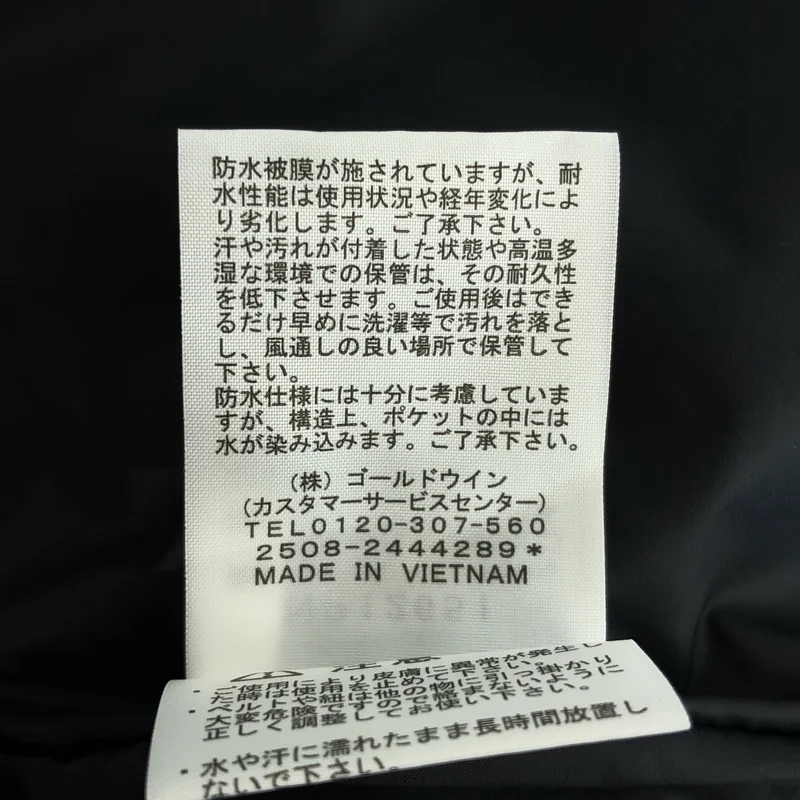 防水被膜が施されていますが、耐
水性能は使用状況や経年変化によ
り劣化します。ご了承下さい。
汗や汚れが付着した状態や高温多
湿な環境での保管は、その耐久性
を低下させます。ご使用後はでき
るだけ早めに洗濯等で汚れを落と
し、風通しの良い場所で保管して
下さい。
防水仕様には十分に考慮していま
すが、構造上、ポケットの中には
水が染み込みます。ご了承下さい。
(株)ゴールドウイン
(カスタマーサービスセンター)
TEL0120-307-560
2508-2444289*
MADE IN VIETNAM
注意
・ご使用により皮膚に異常が発生し
た時は使用を止めて下さい。
・ベルトや紐は他の物に引っ掛かり
大変危険ですので絡まないように
正しく調整してお使い下さい。
・水や汗に濡れたまま長時間放置し
ないで下さい。